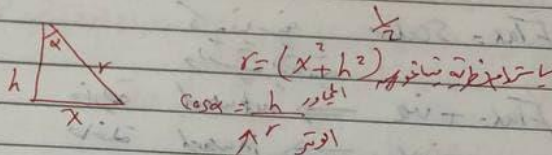 α
r
h
x
r = (x² + h²)^½ باستخدام نظرية فيثاغورس
cosα = h / r المجاور / الوتر